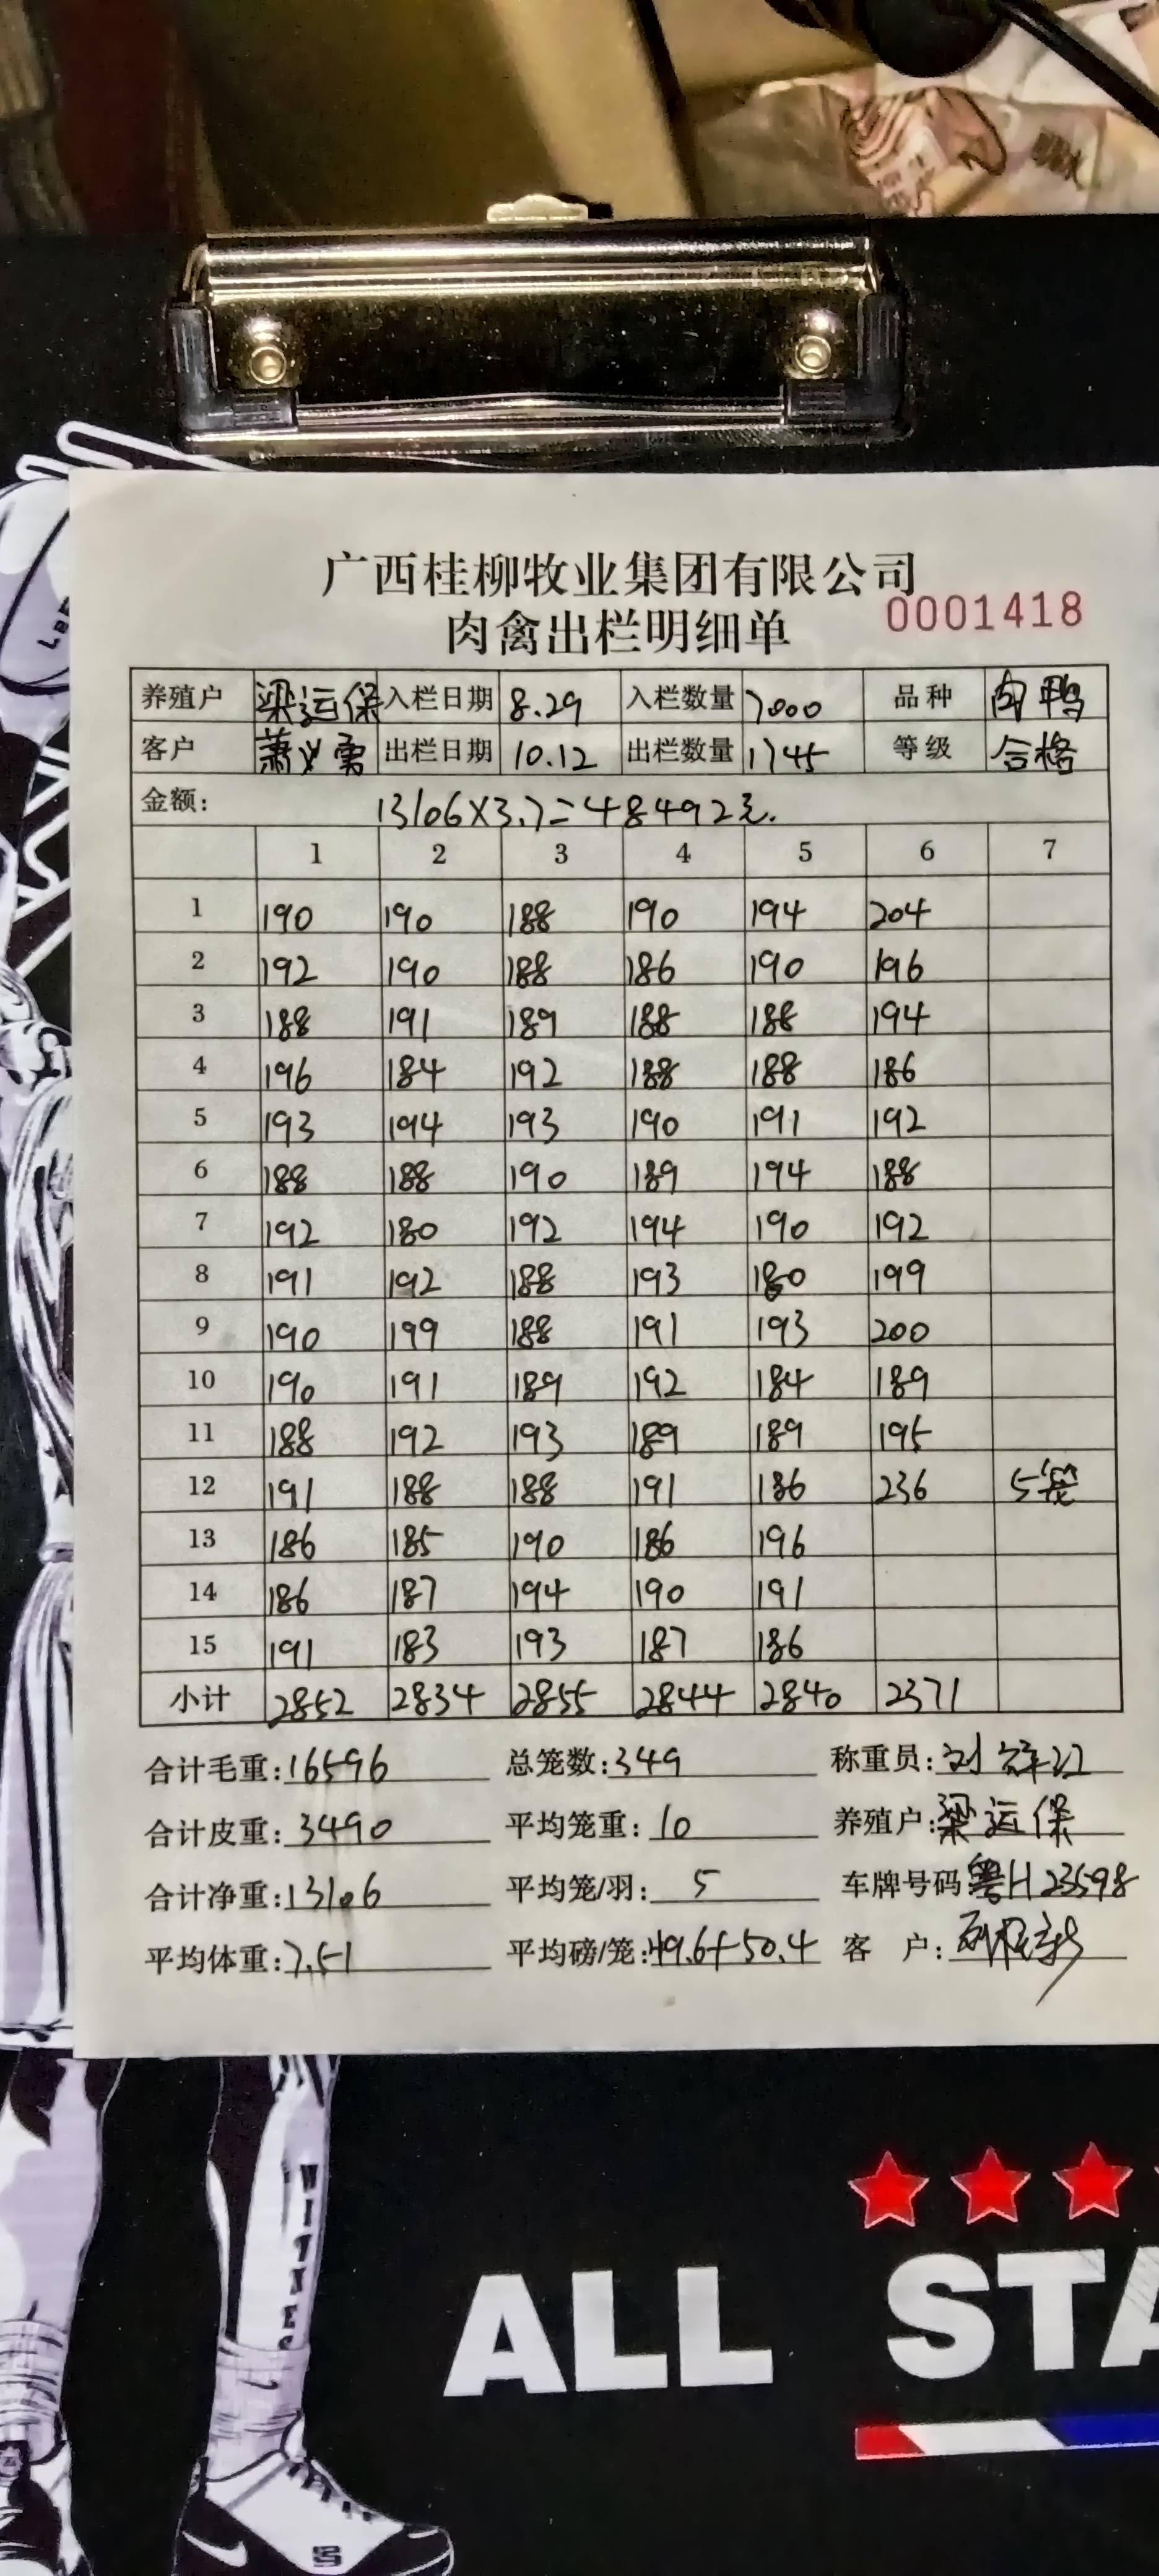 广西桂柳牧业集团有限公司
肉禽出栏明细单 0001418
养殖户 梁运保 入栏日期 8.29 入栏数量 7000 品种 肉鸭
客户 萧义勇 出栏日期 10.12 出栏数量 1745 等级 合格
金额: 13106×3.7=48492元.
1 2 3 4 5 6 7
1 190 190 188 190 194 204
2 192 190 188 186 190 196
3 188 191 189 188 188 194
4 196 184 192 188 188 186
5 193 194 193 190 191 192
6 188 188 190 189 194 188
7 192 180 192 194 190 192
8 191 192 188 193 180 199
9 190 199 188 191 193 200
10 190 191 189 192 184 189
11 188 192 193 189 189 195
12 191 188 188 191 186 236 5笼
13 186 185 190 186 196
14 186 187 194 190 191
15 191 183 193 187 186
小计 2852 2834 2855 2844 2840 2371
合计毛重: 16596 总笼数: 349 称重员:
合计皮重: 3490 平均笼重: 10 养殖户: 梁运保
合计净重: 13106 平均笼/羽: 5 车牌号码 粤H23598
平均体重: 7.51 平均磅/笼: 49.6+50.4 客 户:
ALL STA